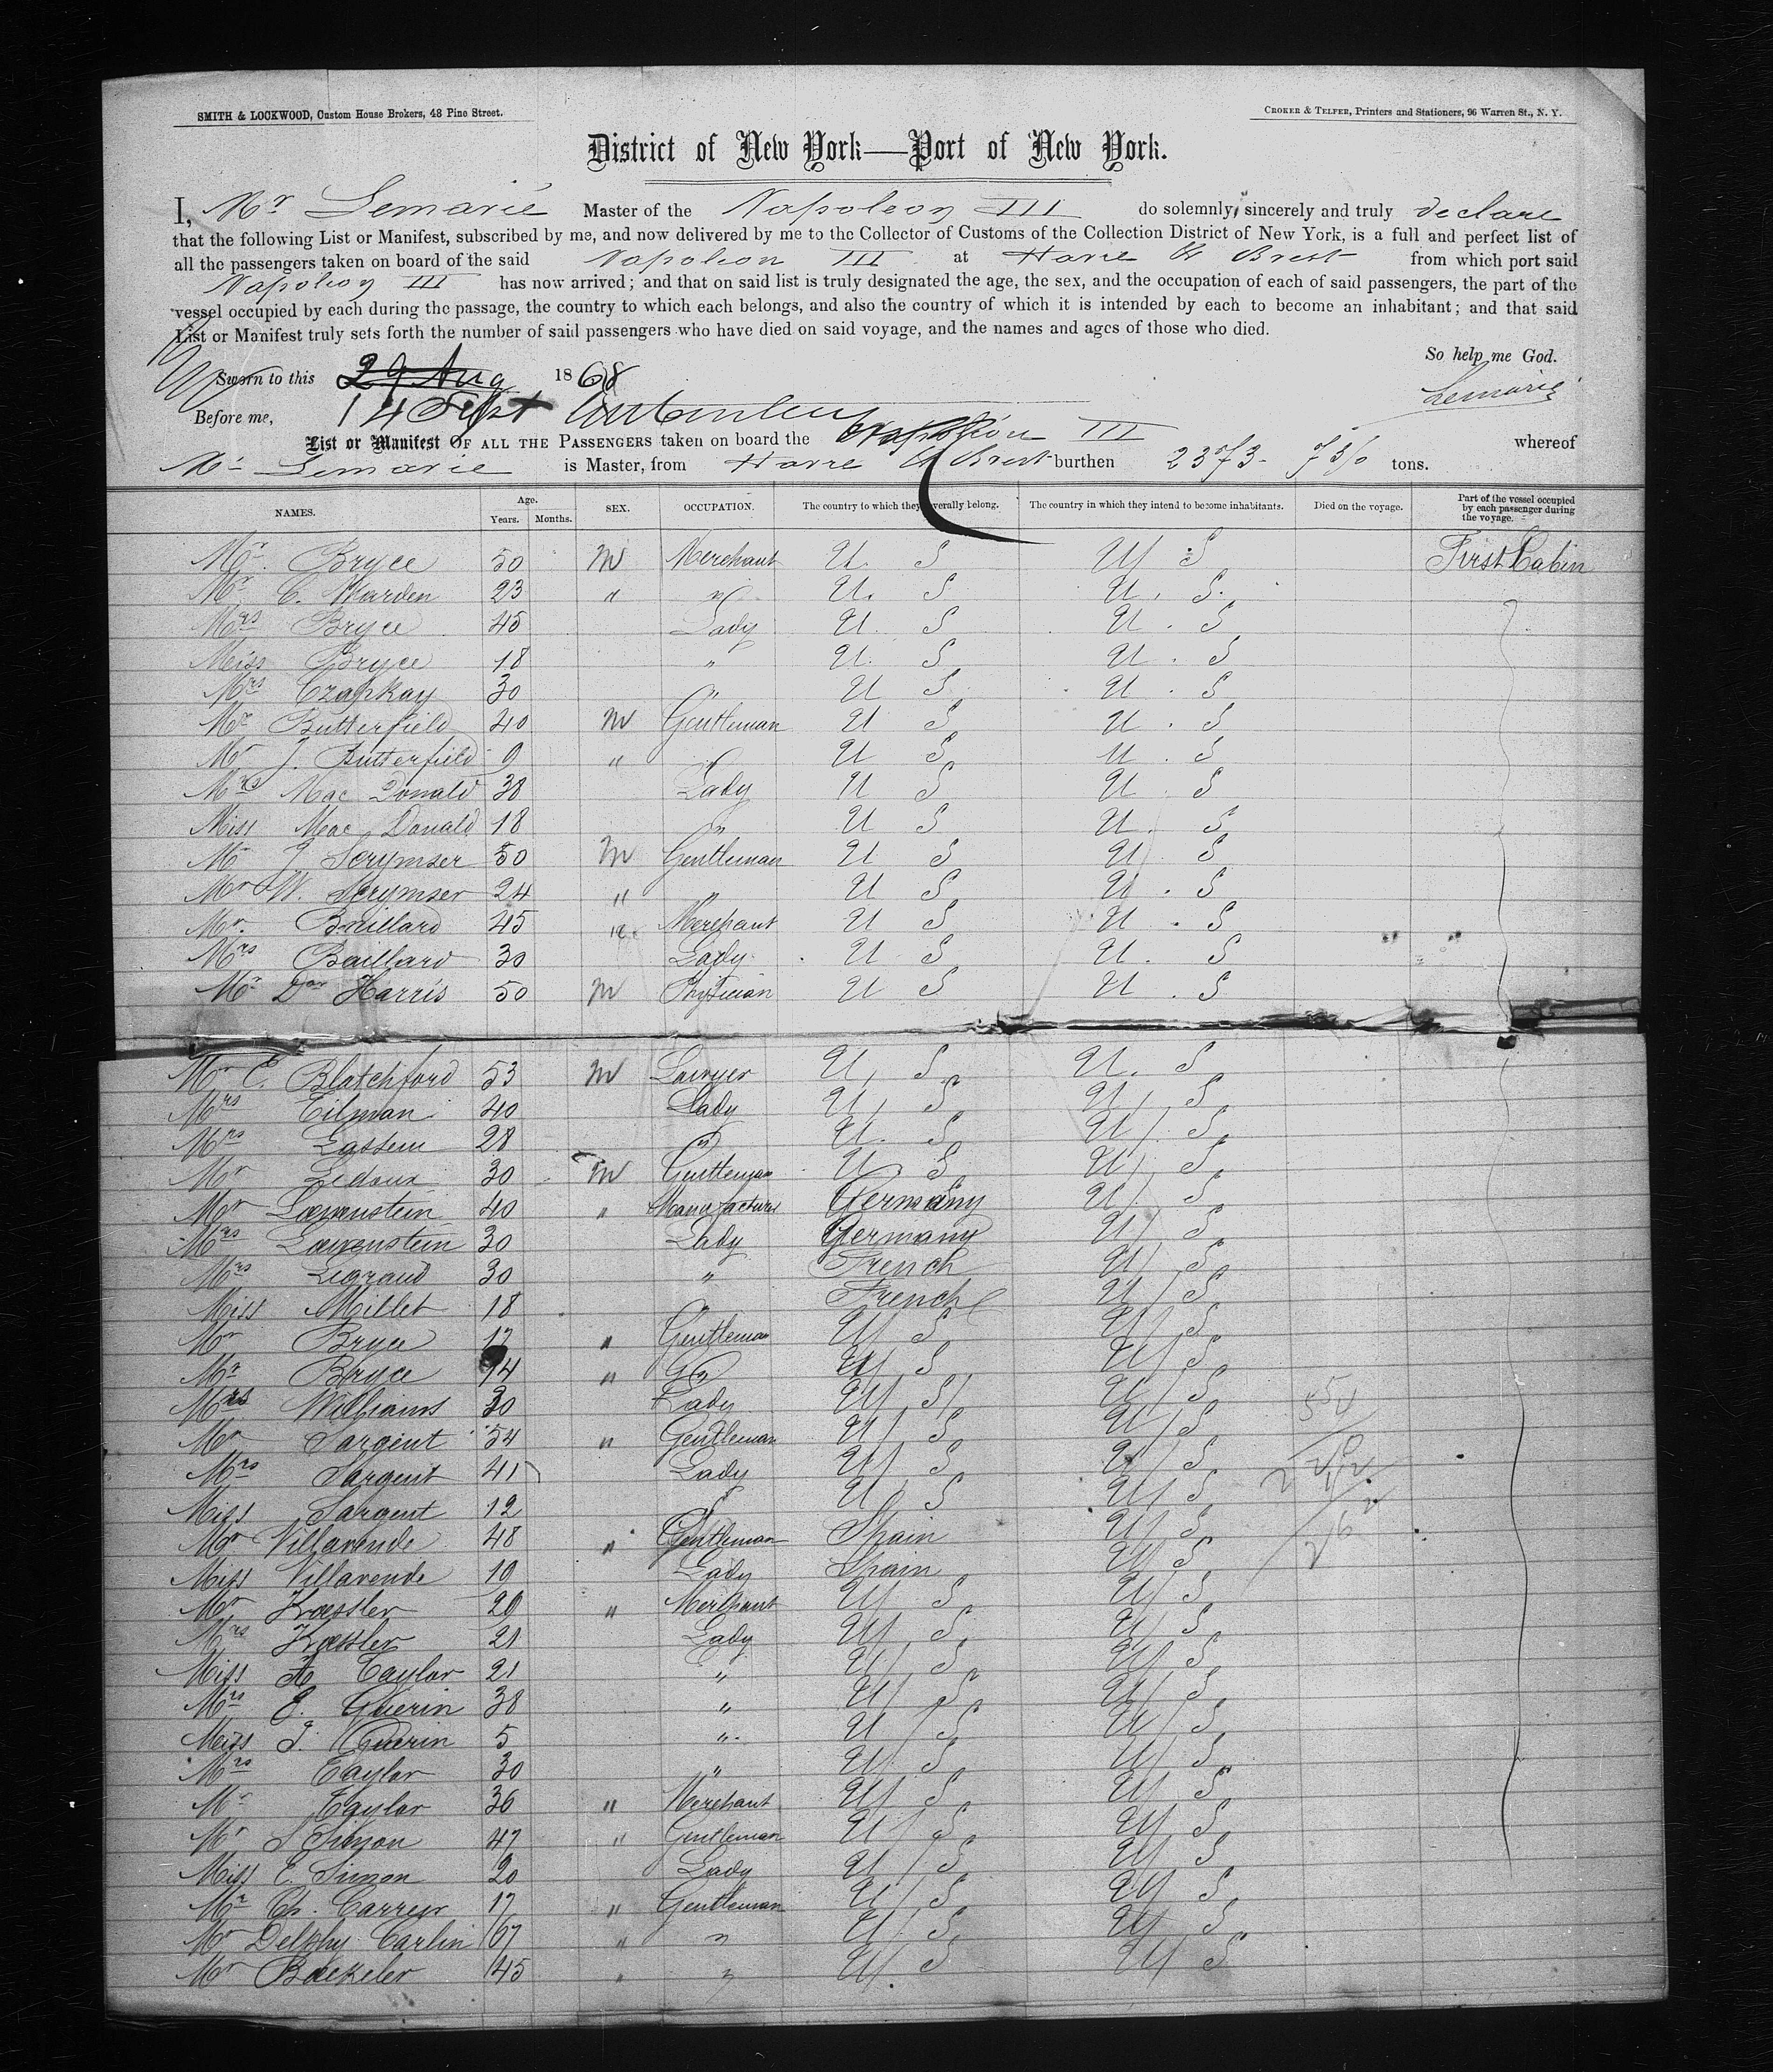 SMITH & LOCKWOOD, Custom House Brokers, 48 Pine Street.
CROKER & TELFER, Printers and Stationers, 96 Warren St., N. Y.
District of New York—Port of New York.
I, Mr Lemarié Master of the Napoleon III do solemnly, sincerely and truly declare
that the following List or Manifest, subscribed by me, and now delivered by me to the Collector of Customs of the Collection District of New York, is a full and perfect list of
all the passengers taken on board of the said Napoleon III at Havre & Brest from which port said
Napoleon III has now arrived; and that on said list is truly designated the age, the sex, and the occupation of each of said passengers, the part of the
vessel occupied by each during the passage, the country to which each belongs, and also the country of which it is intended by each to become an inhabitant; and that said
List or Manifest truly sets forth the number of said passengers who have died on said voyage, and the names and ages of those who died.
So help me God.
Sworn to this 29 Aug 1868
Lemarié
Before me, 14 Sept
List or Manifest OF ALL THE PASSENGERS taken on board the Napoleon III whereof
Mr Lemarie is Master, from Havre & Brest burthen 2373 tons.
NAMES. Age. Years. Months. SEX. OCCUPATION. The country to which they severally belong. The country in which they intend to become inhabitants. Died on the voyage. Part of the vessel occupied by each passenger during the voyage.
Mr. Bryce 50 M Merchant U. S U S First Cabin
Mr C. Warden 23 " " U. S U. S.
Mrs Bryce 45 Lady U. S U. S
Miss Bryce 18 " U. S U. S
Mrs Czapkay 30 " U S U. S
Mr Butterfield 40 M Gentleman U S U. S
Mr J. Butterfield 9 " " U S U. S
Mrs Mac Donald 38 Lady U S U. S
Miss Mac Donald 18 " U S U. S
Mr J Scrymser 50 M Gentleman U S U. S
Mr W. Scrymser 24 " " U S U. S
Mr. Baillard 45 " Merchant U S U. S
Mrs Baillard 30 Lady U S U. S
Mr Dor Harris 50 M Physician U S U. S
Mr E. Blatchford 53 M Lawyer U. S U. S
Mrs Tilman 40 Lady U. S U. S
Mrs 28 " U. S U. S
Mr Ledoux 30 M Gentleman U. S U. S
Mr Loewenstein 40 " Manufacturer Germany U. S
Mrs Loewenstein 30 Lady Germany U. S
Mrs Legrand 30 " French U. S
Miss Millet 18 " French U. S
Mr Bryce 12 " Gentleman U. S U. S
Mr Bryce 14 " " U. S U. S
Mrs Williams 30 Lady U. S U. S
Mr Sargent 54 " Gentleman U. S U. S
Mrs Sargent 41 Lady U. S U. S
Miss Sargent 12 " U. S U. S
Mr Villavende 48 " Gentleman Spain U. S
Miss Villavende 10 Lady Spain U. S
Mr Kroessler 29 " Merchant U. S U. S
Mrs Kroessler 21 Lady U. S U. S
Miss A Taylor 21 " U. S U. S
Mrs E. Guerin 38 " U. S U. S
Miss J. Guerin 5 " U. S U. S
Mrs Taylor 30 " U. S U. S
Mr Taylor 36 " Merchant U. S U. S
Mr S Simon 47 " Gentleman U. S U. S
Miss E. Simon 20 Lady U. S U. S
Mr Ch. 17 " Gentleman U. S U. S
Mr Delphy Carlin 67 " " U. S U. S
Mr Boekeler 45 " " U. S U. S